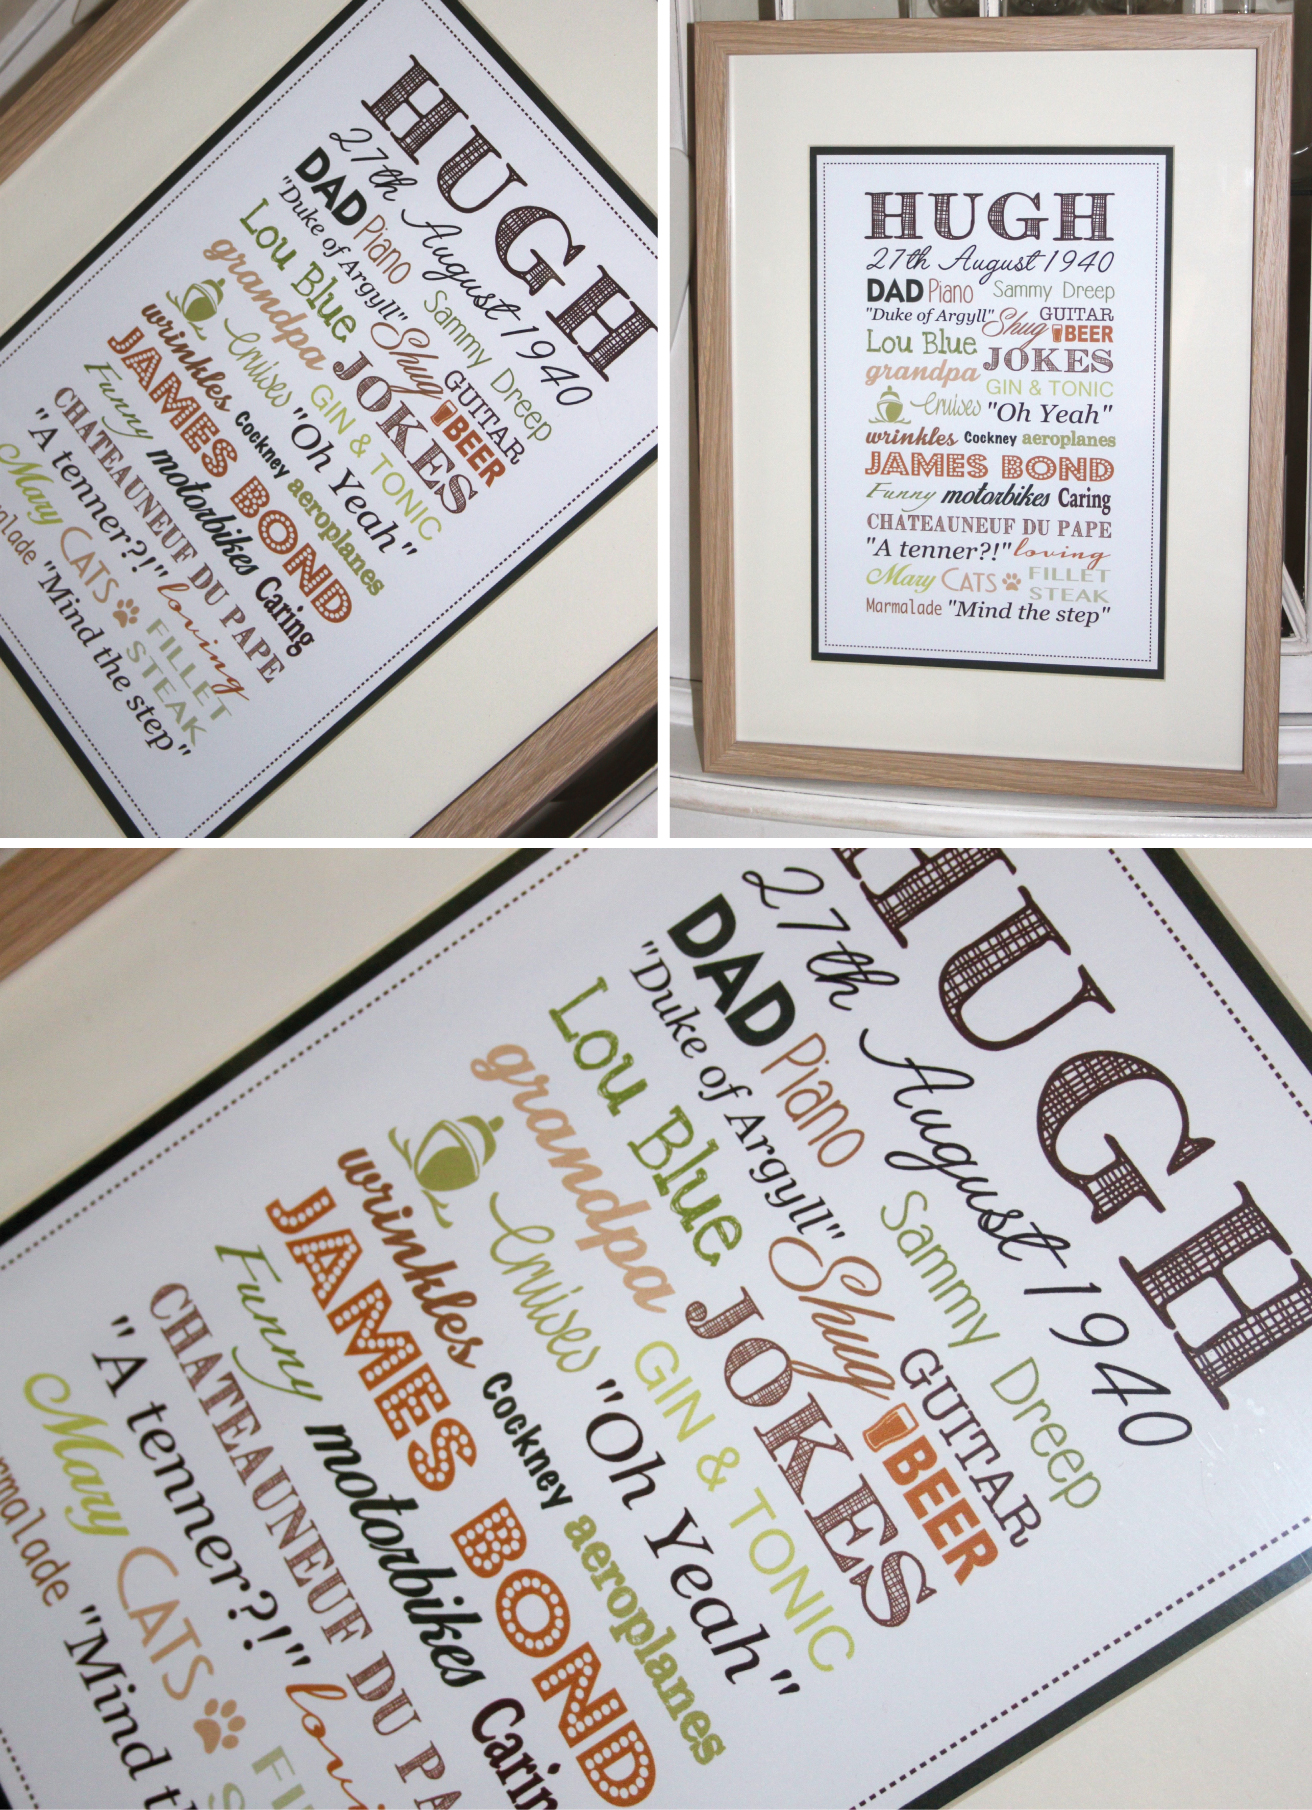 HUGH
27th August 1940
DAD Piano Sammy Dreep
"Duke of Argyll" Shug GUITAR
BEER
Lou Blue JOKES
grandpa GIN & TONIC
Cruises "Oh Yeah"
wrinkles Cockney aeroplanes
JAMES BOND
Funny motorbikes Caring
CHATEAUNEUF DU PAPE
"A tenner?!" loving
Mary CATS FILLET
STEAK
Marmalade "Mind the step"
HUGH
27th August 1940
DAD Piano Sammy Dreep
"Duke of Argyll" Shug GUITAR
BEER
Lou Blue JOKES
grandpa GIN & TONIC
Cruises "Oh Yeah"
wrinkles Cockney aeroplanes
JAMES BOND
Funny motorbikes Caring
CHATEAUNEUF DU PAPE
"A tenner?!" loving
Mary CATS FILLET
STEAK
Marmalade "Mind the step"
HUGH
27th August 1940
DAD Piano Sammy Dreep
"Duke of Argyll" Shug GUITAR
BEER
Lou Blue JOKES
grandpa GIN & TONIC
Cruises "Oh Yeah"
wrinkles Cockney aeroplanes
JAMES BOND
Funny motorbikes Carin
CHATEAUNEUF DU PA
"A tenner?!" lovi
Mary CATS FI
S
rmalade "Mind t